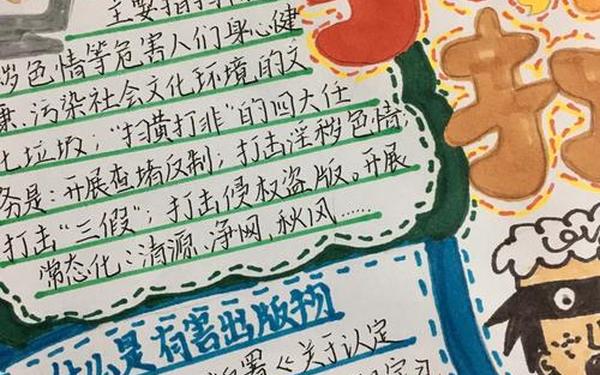 主要指打扌
秽色情等危害人们身心健
康.污染社会文化环境的文
化垃圾；“扫横打非”的四大任
务是：开展查堵反制；打击淫秽色情；
打击“三假”；打击侵权盗版。开展
常态化：清源、净网、秋风……
什么是有害出版物
署《关于认定
扫
打